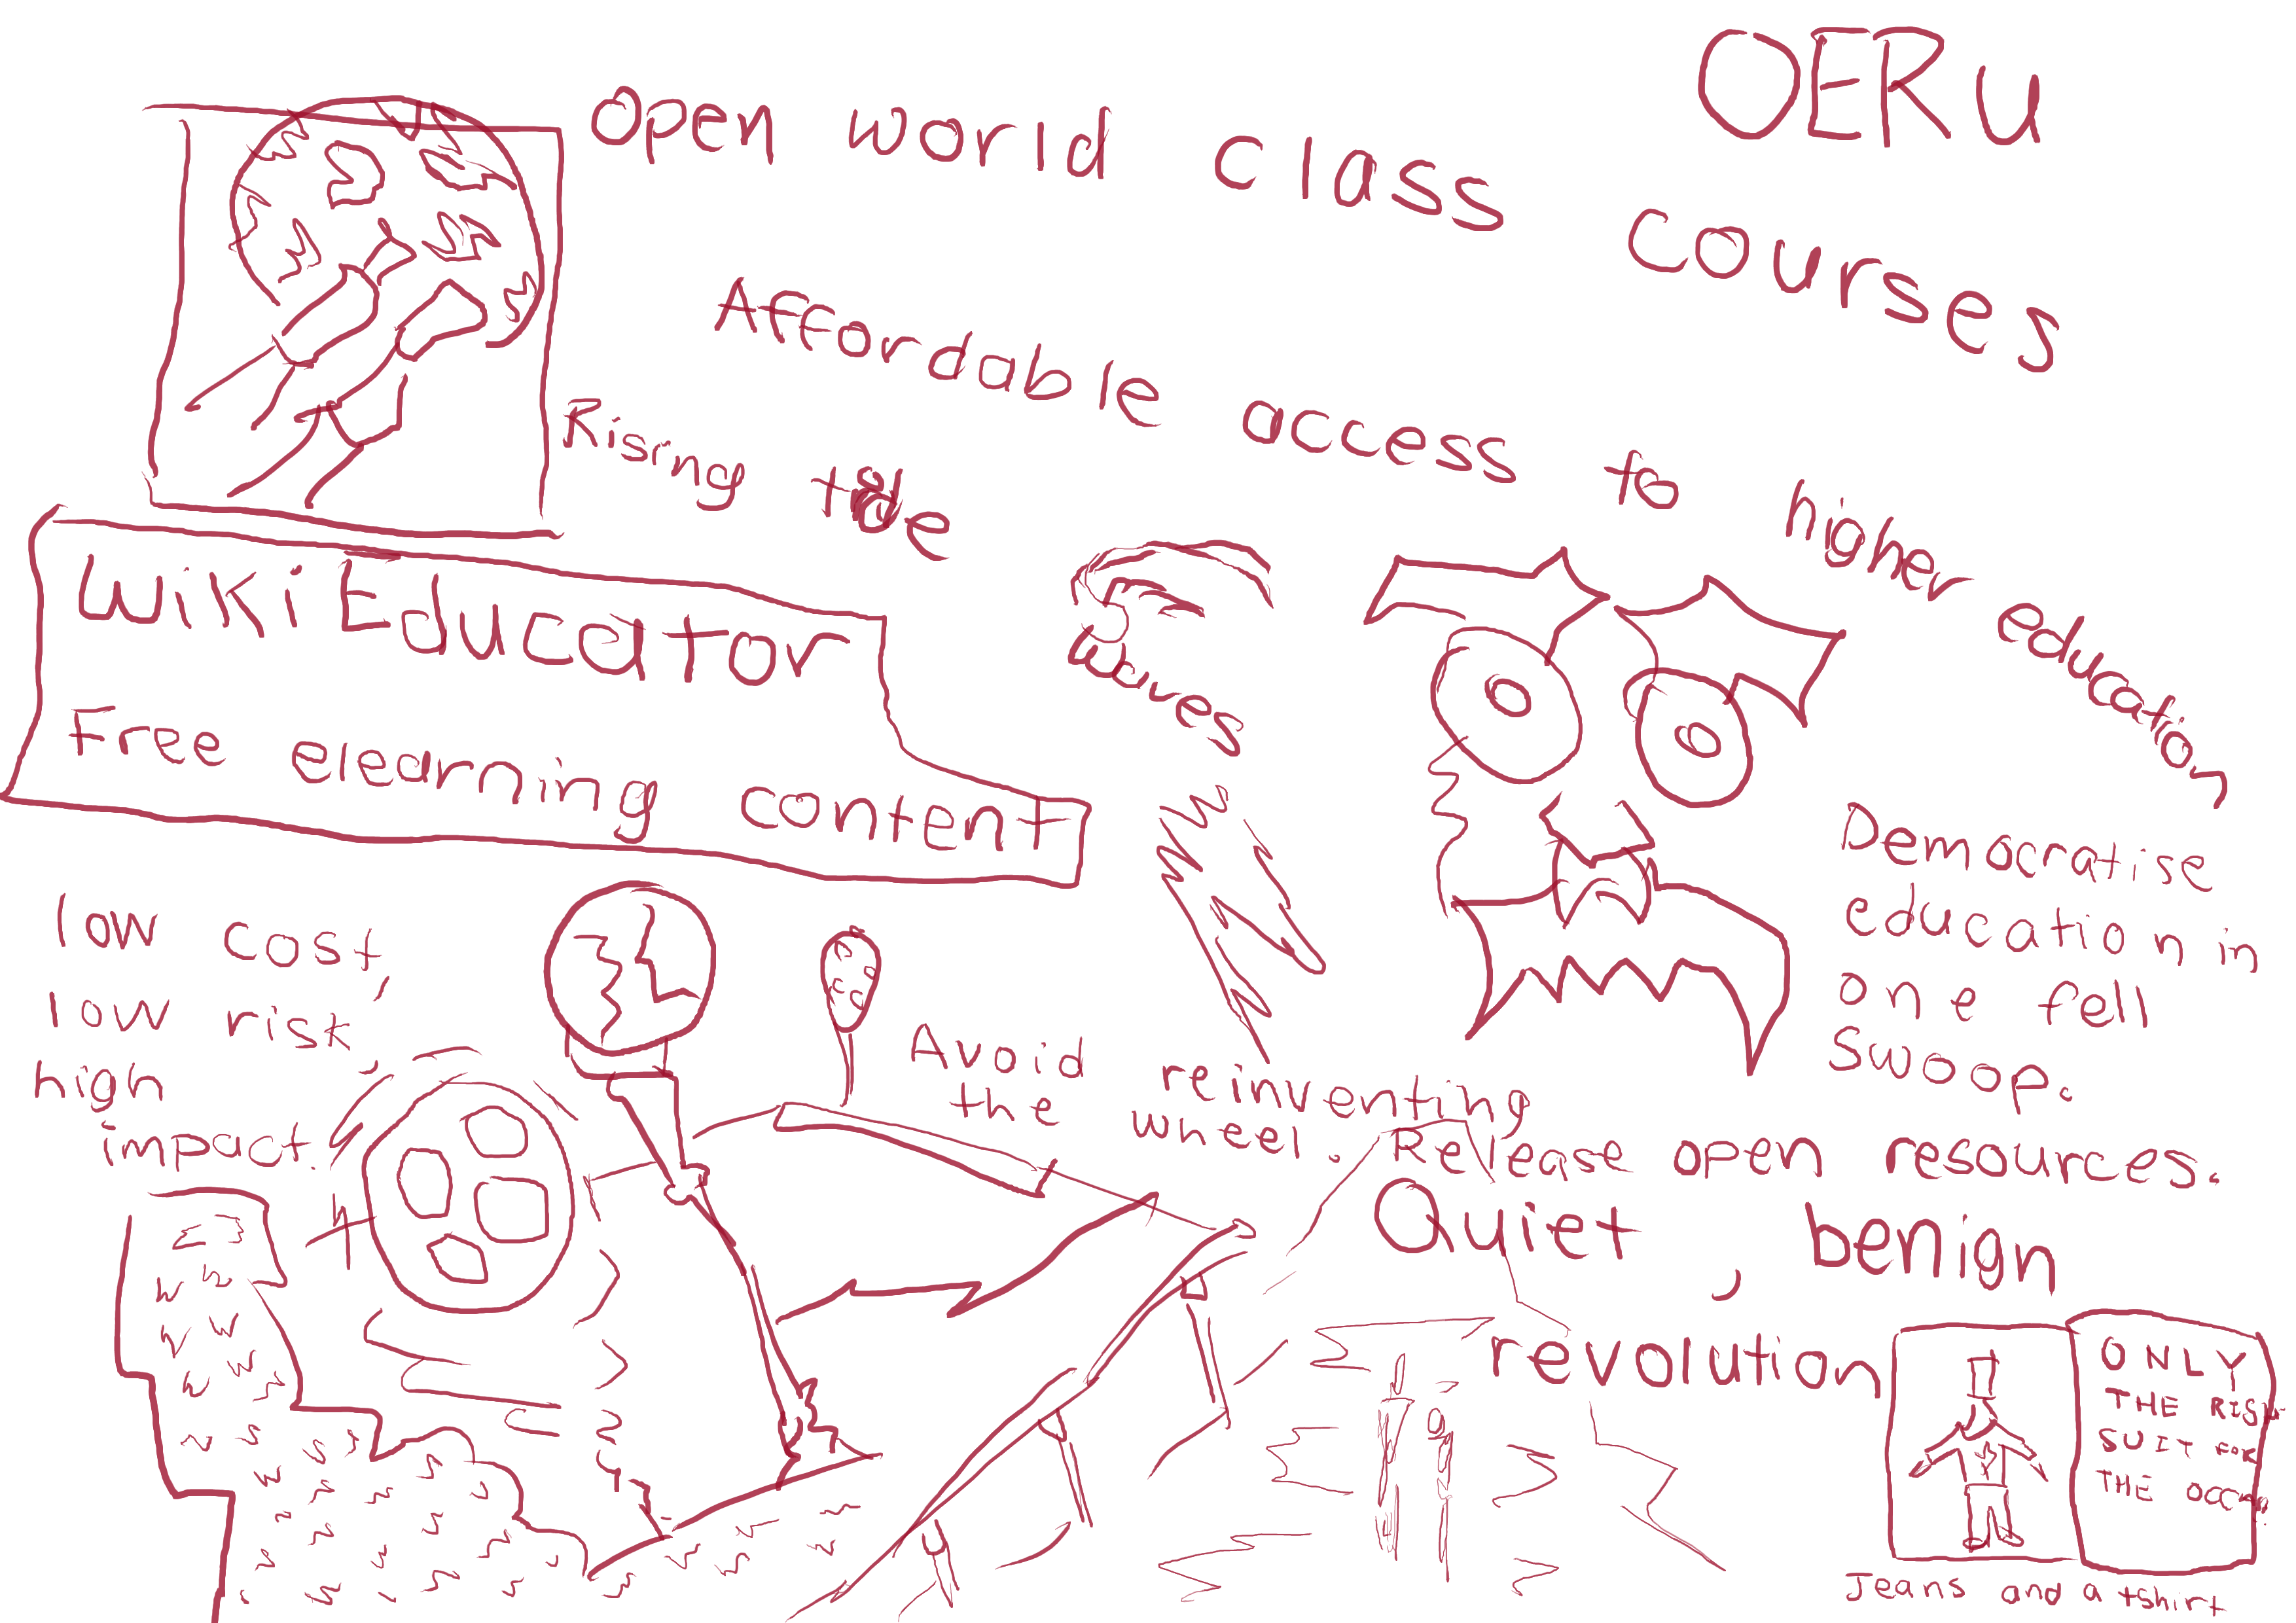 OERu
Open world class courses
Affordable access to higher education
Rising tide
WikiEducator
Free elearning content
Democratise
education in
one fell
swoop.
low cost,
low risk,
high
impact.
Avoid reinventing
the wheel. Release open resources.
Quiet, benign
revolution
ONLY
THE
SUIT FOR
THE
Jeans and a tshirt